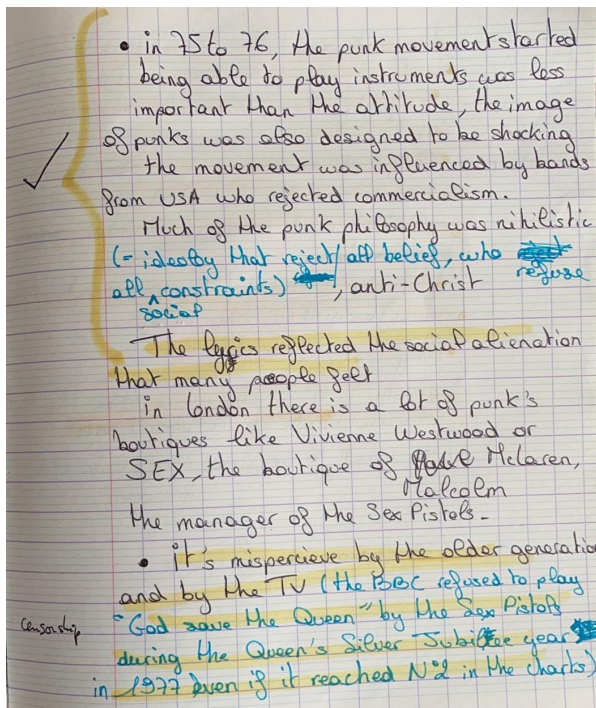 • in 75 to 76, the punk movement started
being able to play instruments was less
important than the attitude, the image
of punks was also designed to be shocking
the movement was influenced by bands
from USA who rejected commercialism.
Much of the punk philosophy was nihilistic
(= ideology that reject all belief, who refuse
all social constraints), anti-Christ
The lyrics reflected the social alienation
that many people felt
in london there is a lot of punk's
boutiques like Vivienne Westwood or
SEX, the boutique of Malcolm Mclaren,
the manager of the Sex Pistols.
• it's mispercieve by the older generation
and by the TV (the BBC refused to play
censorship
"God save the Queen" by the Sex Pistols
during the Queen's Silver Jubilee year
in 1977 even if it reached N°2 in the charts)